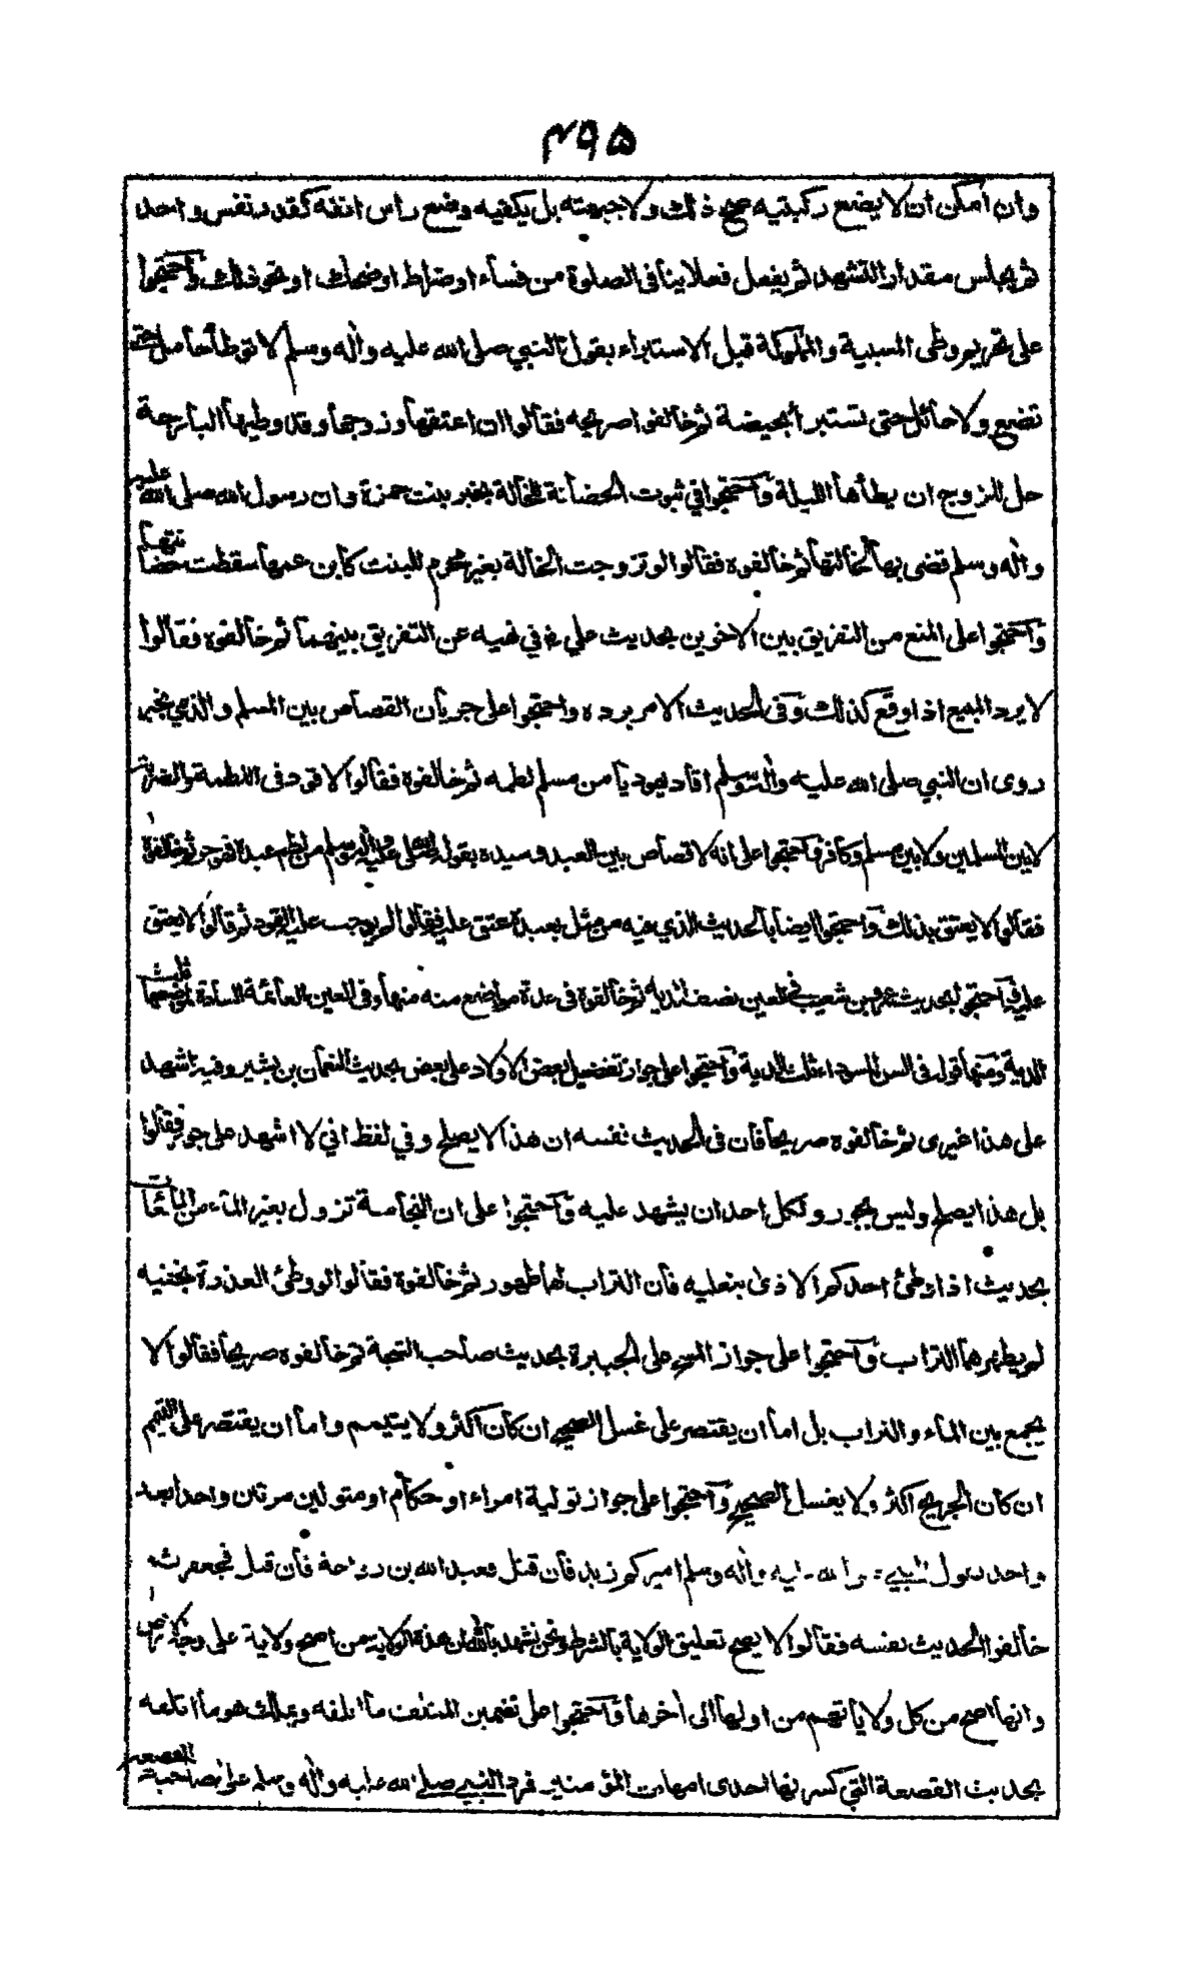 ٤٩٥
وان امكن ان لا يضع ركبتيه صح ذلك ولا جبهته بل يكفيه وضع راس انفه كقدر نفس واحد
ثم يجلس مقدار التشهد ثم يفعل فعلا ينافى الصلوة من فساء او ضراط او ضحك او نحو ذلك واحتجوا
على تحريم وطى المسبية والمملوكة قبل الاستبراء بقول النبي صلى الله عليه واله وسلم لا توطأ حامل حتى
تضع ولا حائل حتى تستبرأ بحيضة ثم خالفوا صريحه فقالوا ان اعتقها وزوجها وقد وطيها البارحة
حل للزوج ان يطأها الليلة واحتجوا في ثبوت الحضانة للخالة بخبر بنت حمزة وان رسول الله صلى الله عليه
واله وسلم قضى بها لخالتها ثم خالفوه فقالوا لو تزوجت الخالة بغير محرم للبنت كابن عمها سقطت حضانتها
واحتجوا على المنع من التفريق بين الاخوين بحديث علي رض في نهيه عن التفريق بينهما ثم خالفوه فقالوا
لا يرد المبيع اذا وقع كذلك وفى الحديث الامر برده واحتجوا على جريان القصاص بين المسلم والذمي بخبر
روى ان النبي صلى الله عليه واله وسلم اقاد يهوديا من مسلم لطمه ثم خالفوه فقالوا لا قود فى اللطمة والضربة
لا بين المسلمين ولا بين مسلم وكافر واحتجوا على انه لا قصاص بين العبد وسيده بقوله صلى الله عليه واله وسلم من لطم عبده فهو حر ثم خالفوه
فقالوا لا يعتق بذلك واحتجوا ايضا بالحديث الذي فيه من مثل بعبده عتق عليه فقالوا لم يوجب عليه القود ثم قالوا لا يعتق
عليه واحتجوا بحديث عمرو بن شعيب في العين نصف الدية ثم خالفوه فى عدة مواضع منه منها وفى العين القائمة السادة لموضعها ثلث
الدية ومنها قوله فى السن السوداء ثلث الدية واحتجوا على جواز تفضيل بعض الاولاد على بعض بحديث النعمان بن بشير وفيه اشهد
على هذا غيرى ثم خالفوه صريحا فان فى الحديث نفسه ان هذا لا يصلح وفي لفظ اني لا اشهد على جور فقالوا
بل هذا يصلح وليس بجور ولكل احد ان يشهد عليه واحتجوا على ان النجاسة تزول بغير الماء من المائعات
بحديث اذا وطئ احدكم الاذى بنعليه فان التراب لهما طهور ثم خالفوه فقالوا لو وطئ العذرة بخفيه
لم يطهرهما التراب واحتجوا على جواز المسح على الجبيرة بحديث صاحب الشجة ثم خالفوه صريحا فقالوا لا
يجمع بين الماء والتراب بل اما ان يقتصر على غسل الصحيح ان كان اكثر ولا يتيمم واما ان يقتصر على التيمم
ان كان الجريح اكثر ولا يغسل الصحيح واحتجوا على جواز تولية امراء او حكام او متولين مرتين واحدا بعد
واحد بقول النبي صلى الله عليه واله وسلم اميركم زيد فان قتل فعبد الله بن رواحة فان قتل فجعفر ثم
خالفوا الحديث نفسه فقالوا لا يصح تعليق الولاية بالشرط ونحن نشهد بالله ان هذه الولاية من اصح ولاية على وجه الارض
وانها اصح من كل ولاياتهم من اولها الى اخرها واحتجوا على تضمين المتلف ما اتلفه ويملك هو ما اتلفه
بحديث القصعة التي كسرتها احدى امهات المؤمنين فرد النبي صلى الله عليه واله وسلم على صاحبة القصعة